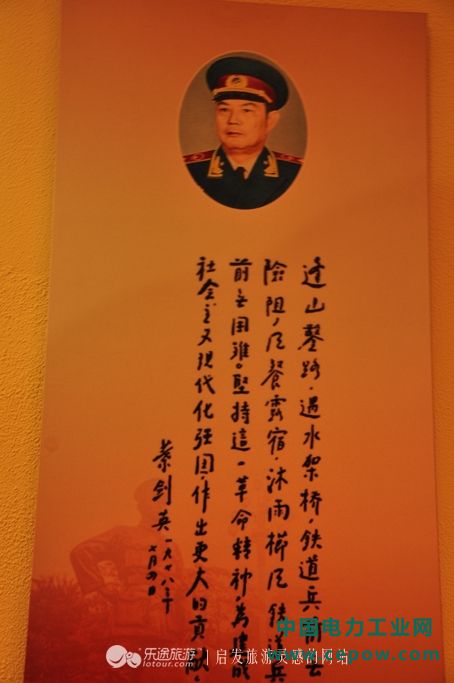 逢山鑿路，遇水架桥，铁道兵前无
險阻，风餐露宿，沐雨栉风，铁道兵
前无困难。坚持這一革命精神为建成
社会主义现代化强国，作出更大的贡献。
葉剑英 一九七八年
七月 日
中国电力工业网
乐途旅游
lotour.com
启发旅游灵感的网站